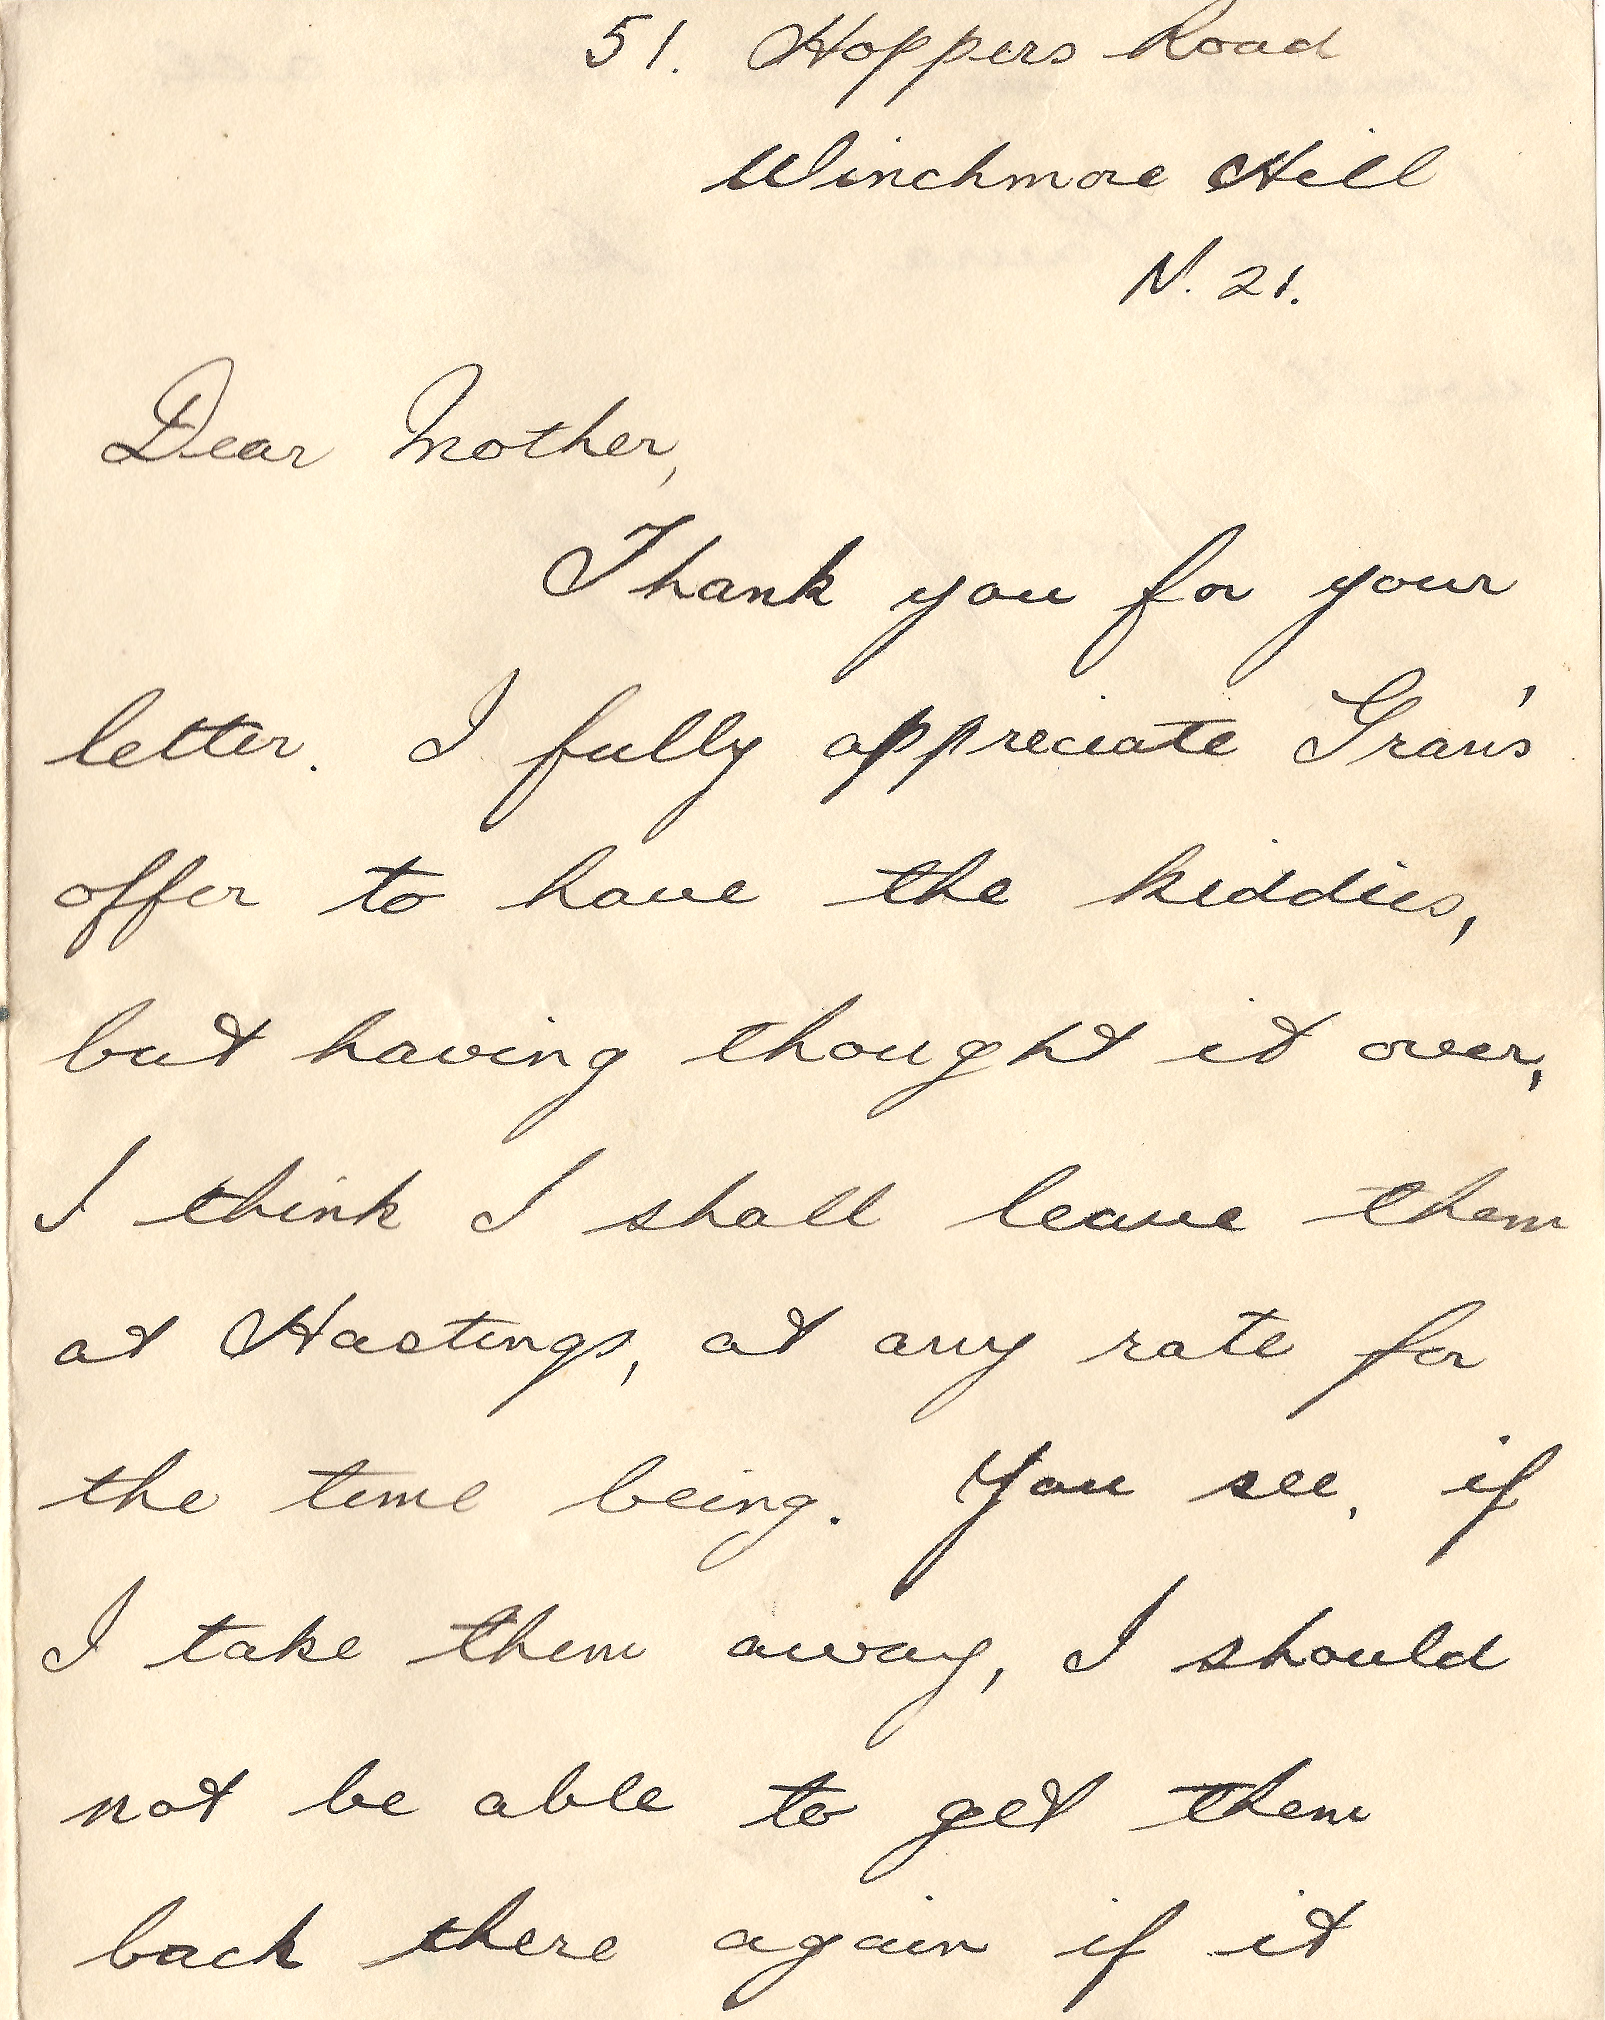 51. Hoppers Road
Winchmore Hill
N. 21.
Dear Mother,
Thank you for your
letter. I fully appreciate Gran's
offer to have the kiddies,
but having thought it over,
I think I shall leave them
at Hastings, at any rate for
the time being. You see, if
I take them away, I should
not be able to get them
back there again if it